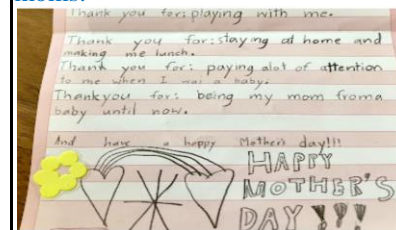 Thank you for: playing with me.
Thank you for: staying at home and
making me lunch.
Thank you for: paying alot of attention
to me when I was a baby.
Thankyou for: being my mom from a
baby until now.
And have a happy Mother's day!!!
HAPPY
MOTHER'S
DAY !!!